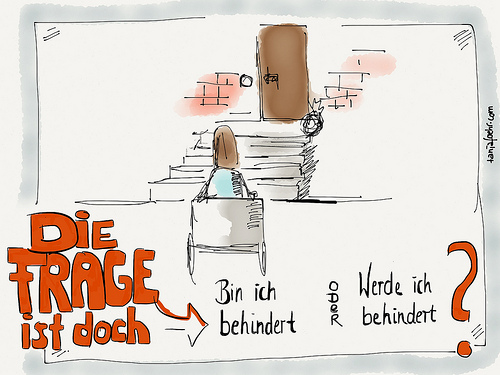 DiE
FRAGE
ist doch
Bin ich
behindert
ODER
Werde ich
behindert
?